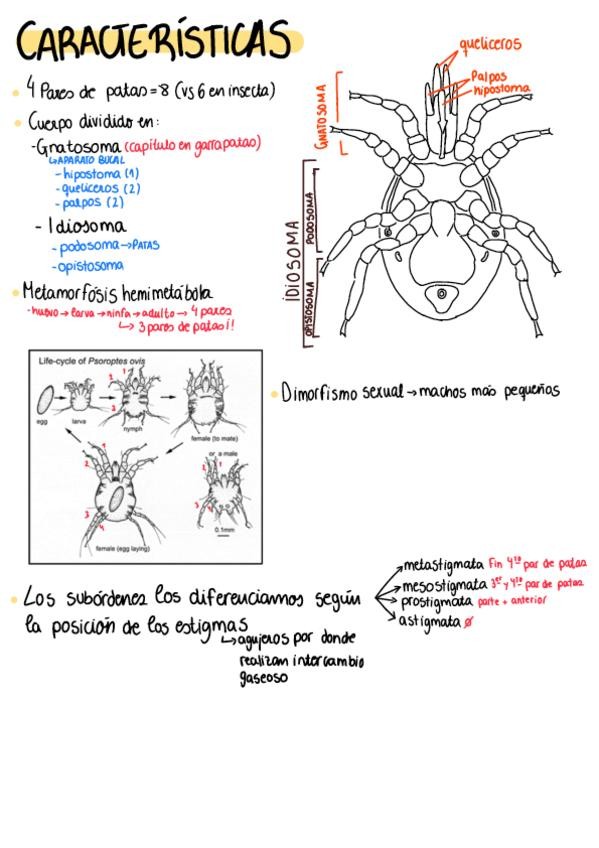 CARACTERÍSTICAS
4 Pares de patas = 8 (vs 6 en insecta)
Cuerpo dividido en:
- Gnatosoma (capitulo en garrapatas)
↳ APARATO BUCAL
- hipostoma (1)
- queliceros (2)
- palpos (2)
- Idiosoma
- podosoma → PATAS
- opistosoma
Metamorfósis hemimetábola
- huevo → larva → ninfa → adulto → 4 pares
↳ 3 pares de patas!!
queliceros
Palpos
hipostoma
GNATOSOMA
IDIOSOMA
PODOSOMA
OPISTOSOMA
Life-cycle of Psoroptes ovis
egg
larva
nymph
female (to mate)
or a male
female (egg laying)
0.1mm
1
2
3
1
2
3
4
1
2
3
4
Dimorfismo sexual → machos más pequeños
Los subórdenes los diferenciamos según
la posición de los estigmas
↳ agujeros por donde
realizan intercambio
gaseoso
metastigmata Fin 4to par de patas
mesostigmata 3er y 4to par de patas
prostigmata parte + anterior
astigmata ø